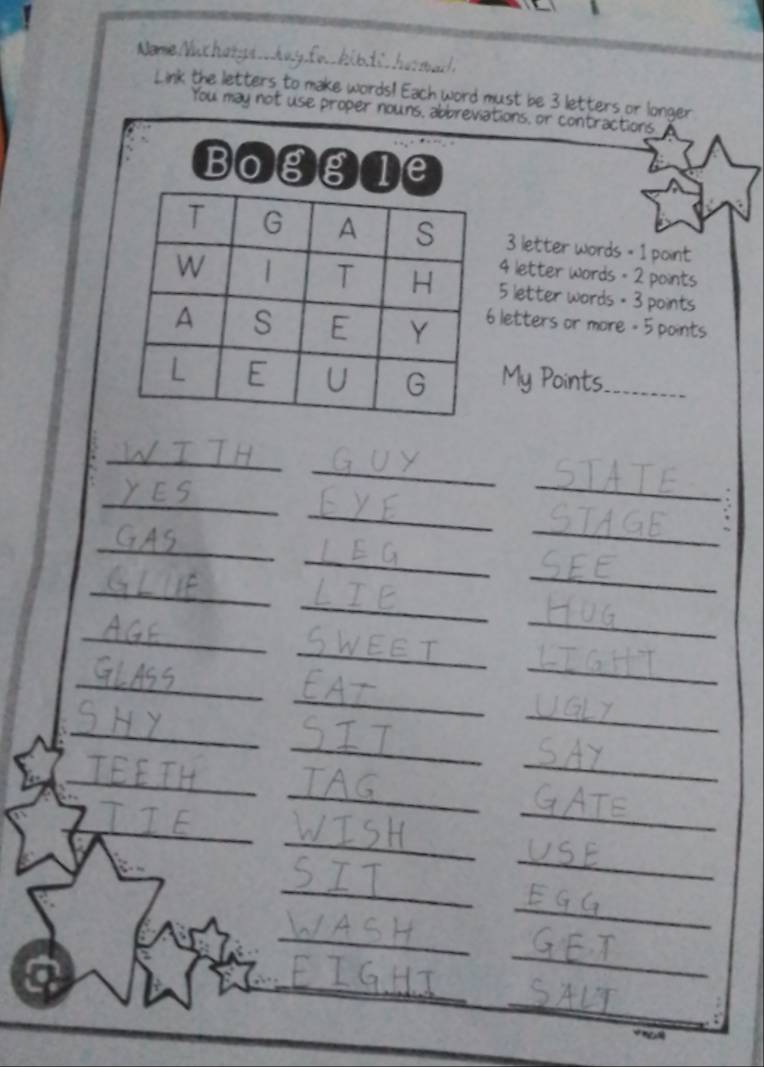 Name
Link the letters to make words! Each word must be 3 letters or longer.
You may not use proper nouns, abbreviations, or contractions.
Boggle
T G A S
W I T H
A S E Y
L E U G
3 letter words = 1 point
4 letter words = 2 points
5 letter words = 3 points
6 letters or more = 5 points
My Points
WITH
YES
GAS
GLUE
AGE
GLASS
SHY
TEETH
TIE
GUY
EYE
LEG
LIE
SWEET
EAT
SIT
TAG
WISH
SIT
WASH
EIGHT
STATE
STAGE
SEE
HUG
LIGHT
UGLY
SAY
GATE
USE
EGG
GET
SALT